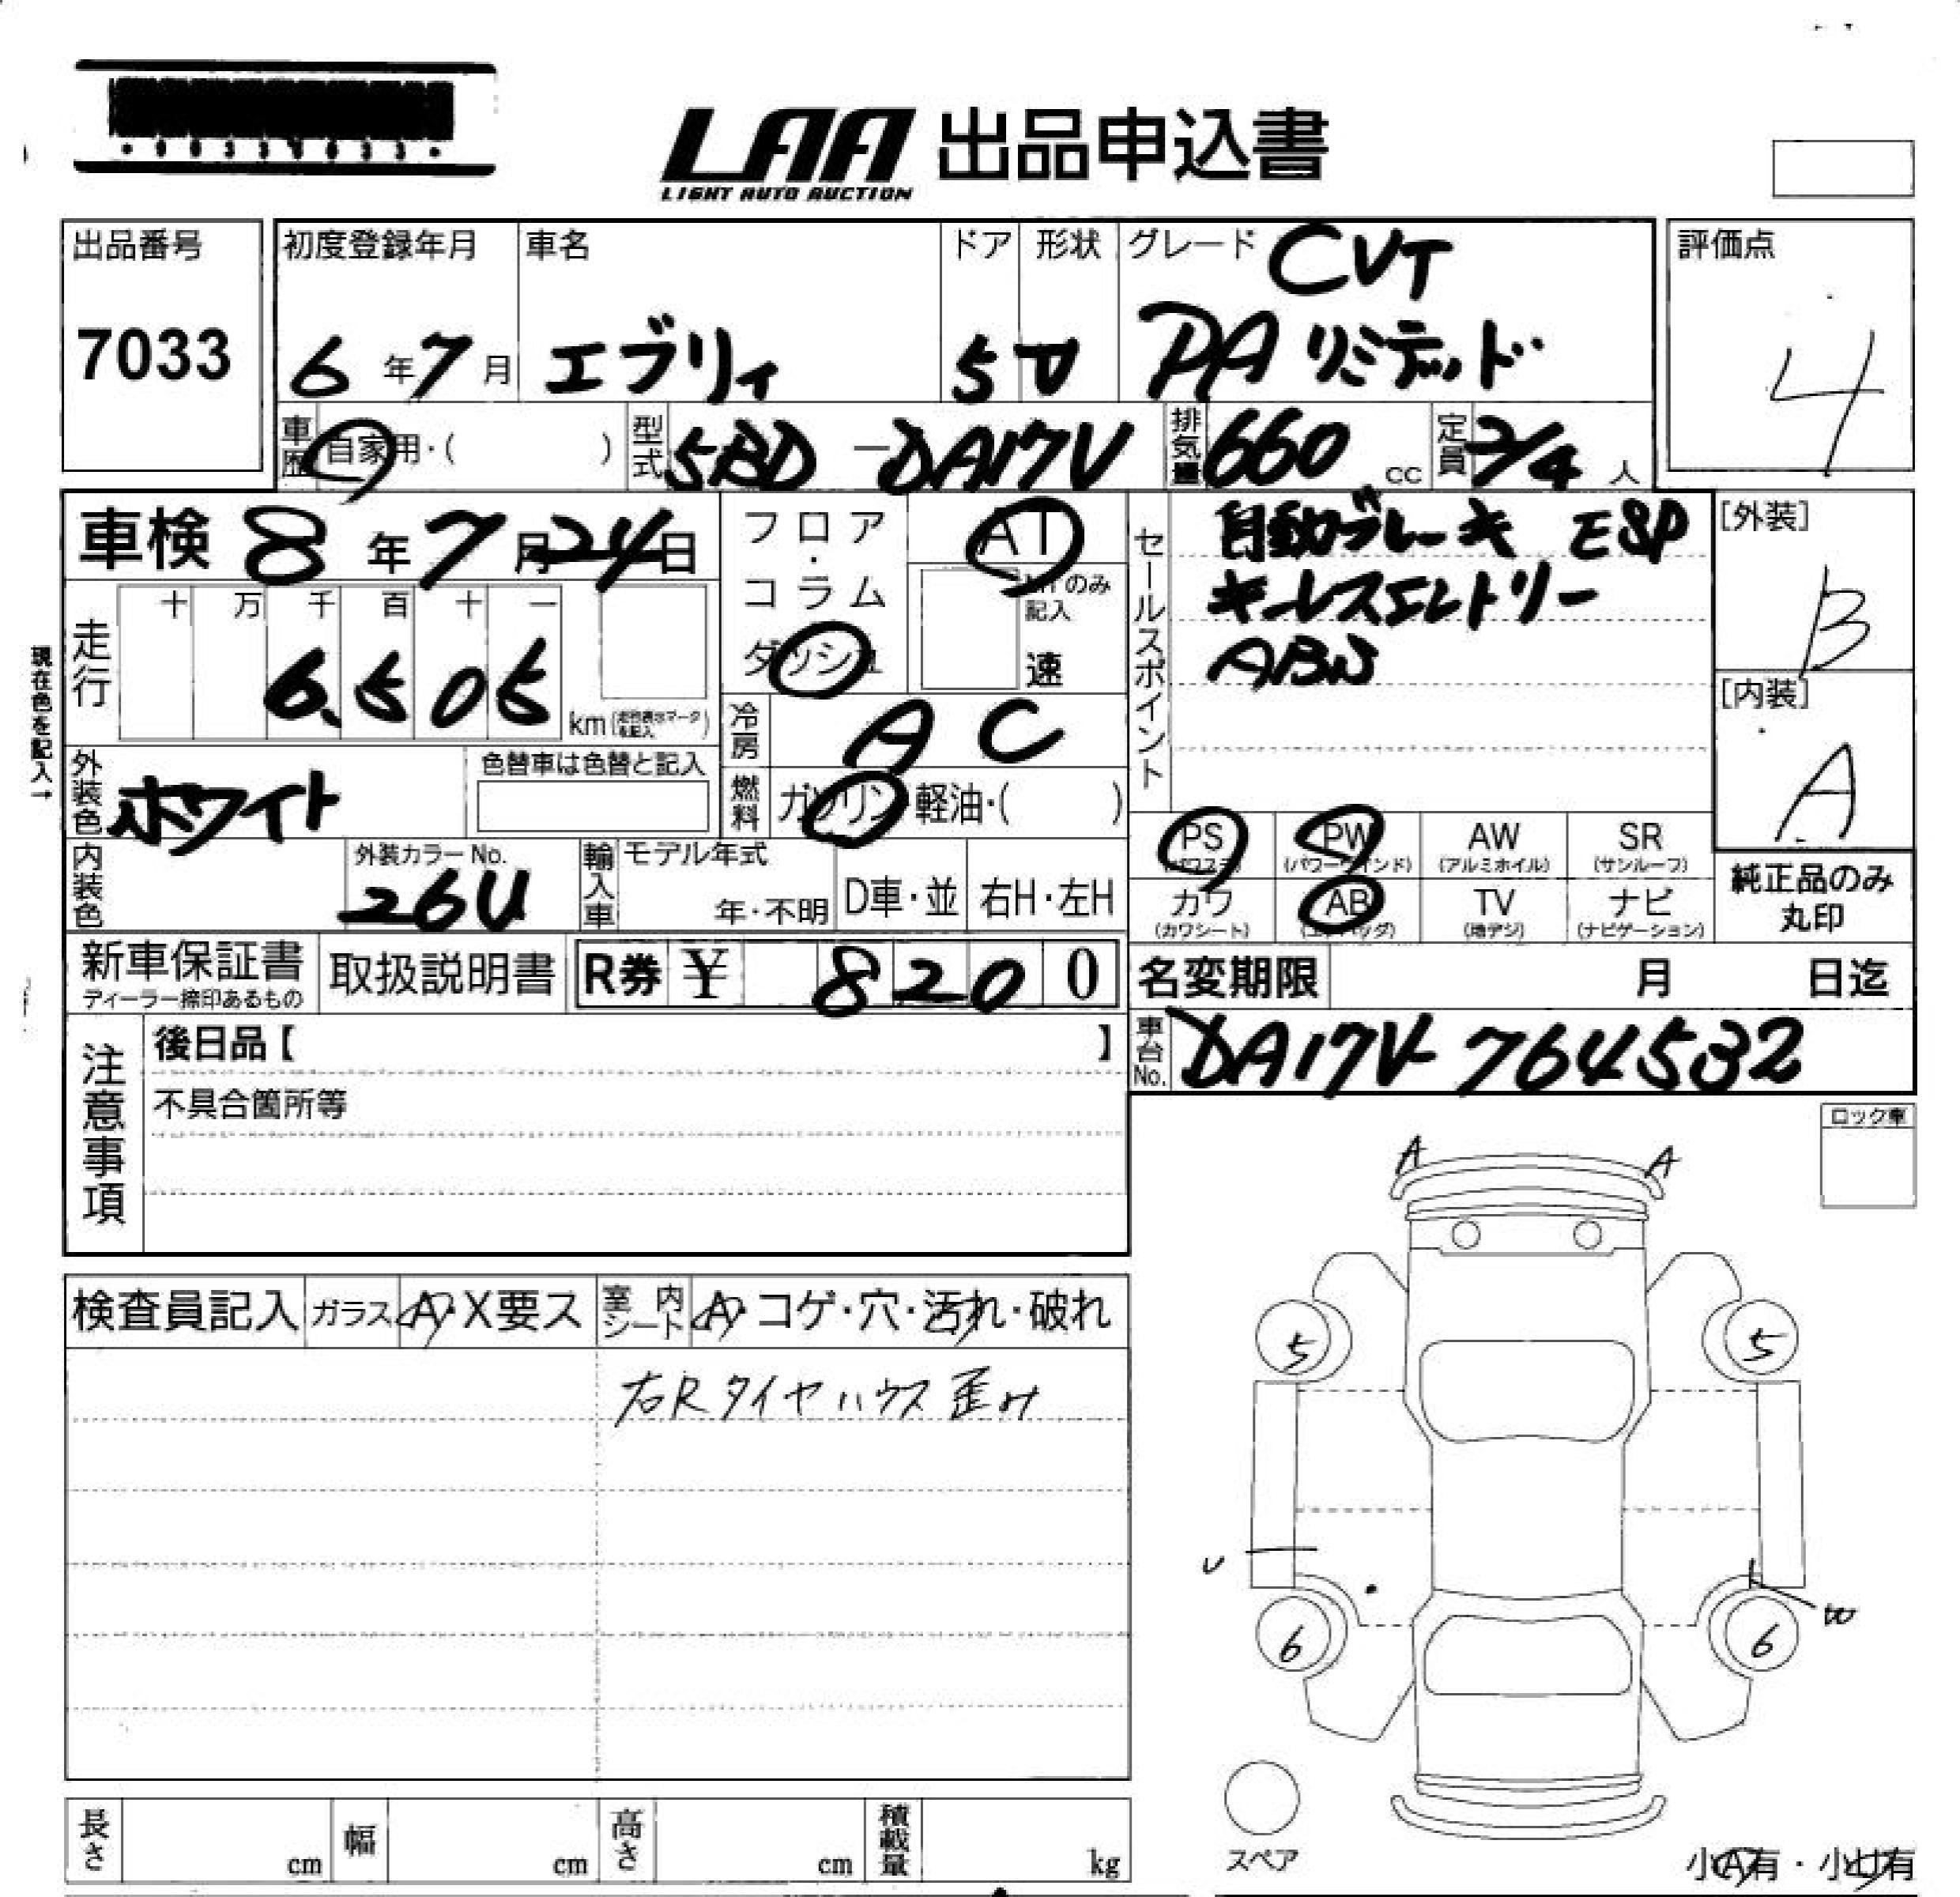 LAA 出品申込書
LIGHT AUTO AUCTION
出品番号
7033
初度登録年月
6年7月
車名
エブリィ
ドア
5
形状
V
グレード
CVT
PAリミテッド
評価点
4
車歴 自家用・( )
型式 5BD-DA17V
排気量 660cc
定員 2/4人
車検 8年7月24日
フロア・コラム
ダッシュ
AT
MTのみ記入
速
セールスポイント
自動ブレーキ ESP
キーレスエントリー
ABS
[外装]
B
[内装]
A
現在色を記入→
走行
十 万 千 百 十 一
6.505 km
冷房 AC
外装色 ホワイト
色替車は色替と記入
燃料 ガソリン・軽油・( )
内装色
外装カラーNo.
26U
輸入車
モデル年式
年・不明
D車・並
右H・左H
PS
(パワステ)
PW
(パワーウインド)
AW
(アルミホイル)
SR
(サンルーフ)
カワ
(カワシート)
AB
(エアバッグ)
TV
(地デジ)
ナビ
(ナビゲーション)
純正品のみ
丸印
新車保証書
ディーラー捺印あるもの
取扱説明書
R券 ¥ 8200
名変期限 月 日迄
車台No. DA17V-764532
注意事項
後日品【 】
不具合箇所等
ロック車
A A
検査員記入
ガラス A・X要ス
室内シート A・コゲ・穴・汚れ・破れ
右Rタイヤハウス歪み
5 5
U
W
6 6
スペア
小A有・小U有
長さ cm
幅 cm
高さ cm
積載量 kg